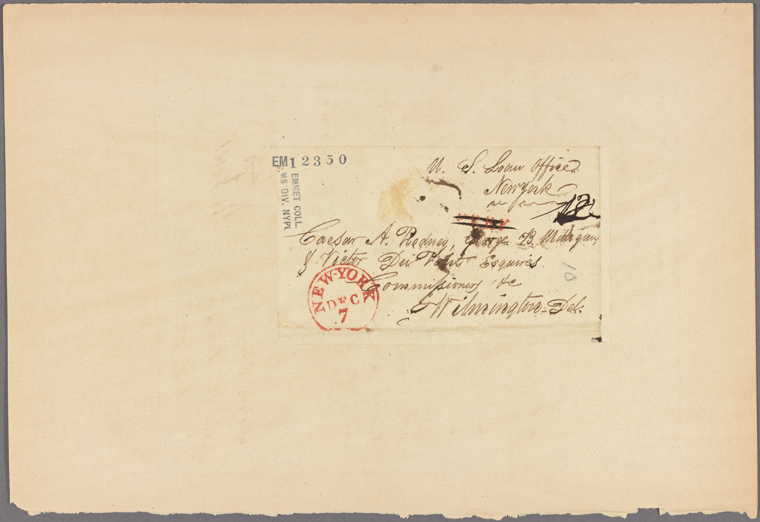 EM12350
EMMET COLL.
MS DIV. NYPL
U. S. Loan Office
New York
Caesar A. Rodney, George B. Milligan,
& Victor Du Pont Esquires.
Commissioners &c
Wilmington Del.
NEW-YORK
DEC
7
10